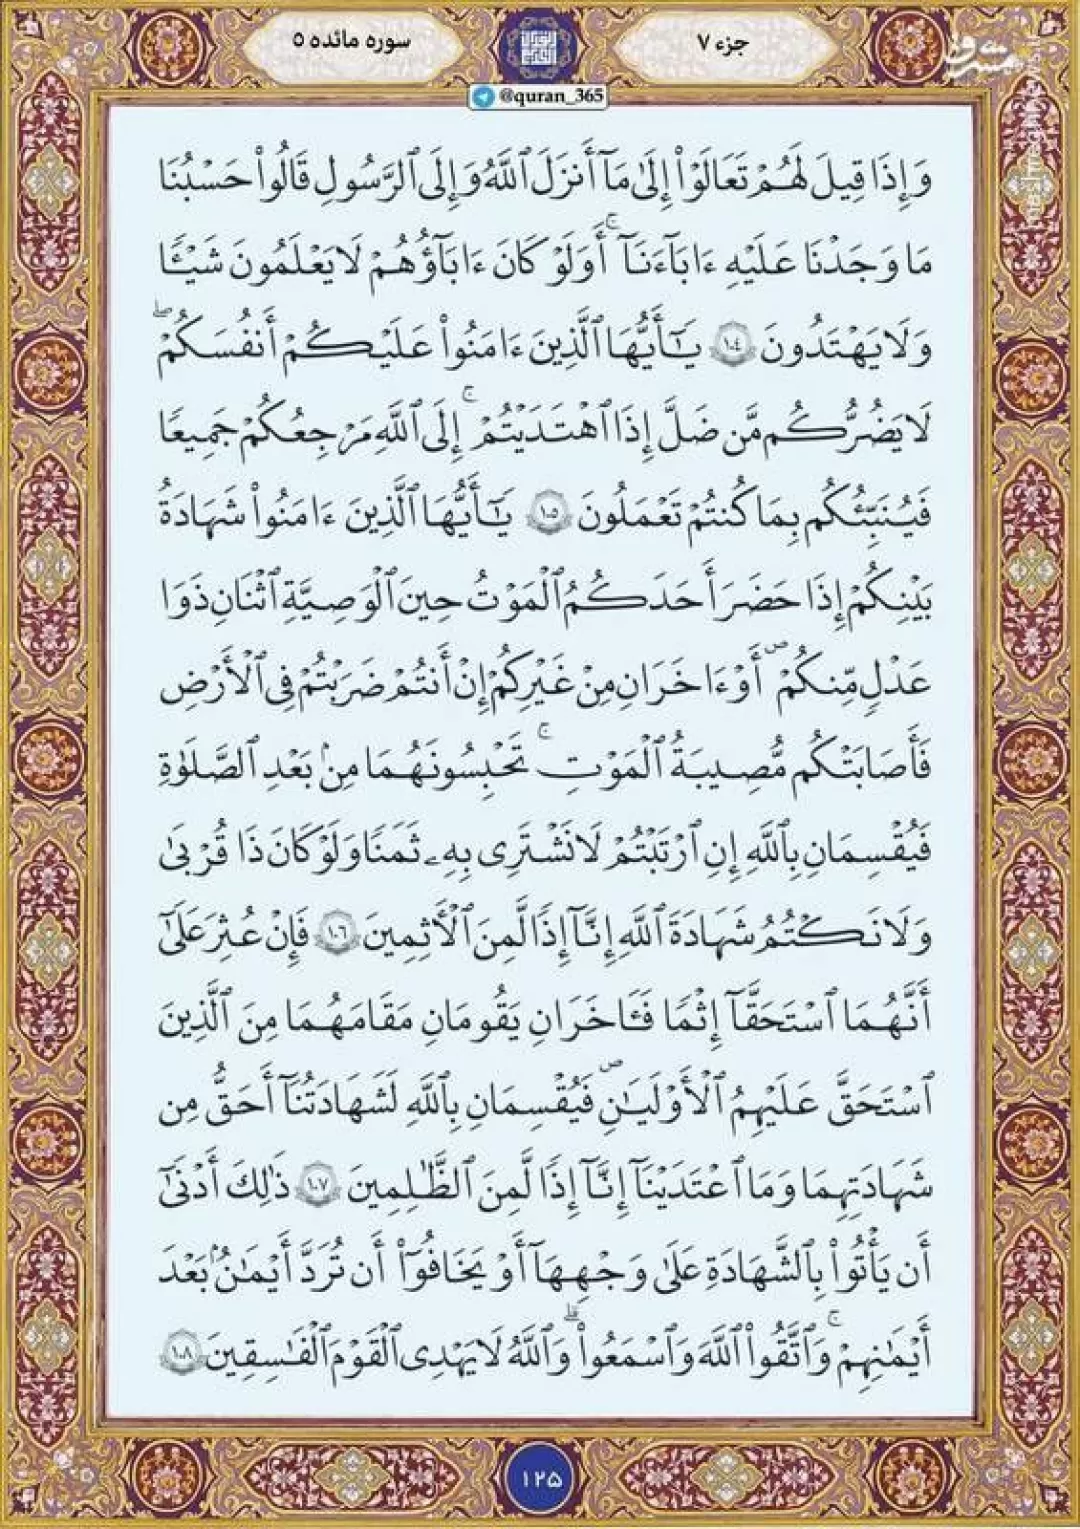 جزء ۷
سوره مائده ۵
مشرق
mashreghnews
@quran_365
وَإِذَا قِيلَ لَهُمْ تَعَالَوْا۟ إِلَىٰ مَآ أَنزَلَ ٱللَّهُ وَإِلَى ٱلرَّسُولِ قَالُوا۟ حَسْبُنَا
مَا وَجَدْنَا عَلَيْهِ ءَابَآءَنَآ ۚ أَوَلَوْ كَانَ ءَابَآؤُهُمْ لَا يَعْلَمُونَ شَيْـًٔا
وَلَا يَهْتَدُونَ ١٠٤ يَـٰٓأَيُّهَا ٱلَّذِينَ ءَامَنُوا۟ عَلَيْكُمْ أَنفُسَكُمْ ۖ
لَا يَضُرُّكُم مَّن ضَلَّ إِذَا ٱهْتَدَيْتُمْ ۚ إِلَى ٱللَّهِ مَرْجِعُكُمْ جَمِيعًا
فَيُنَبِّئُكُم بِمَا كُنتُمْ تَعْمَلُونَ ١٠٥ يَـٰٓأَيُّهَا ٱلَّذِينَ ءَامَنُوا۟ شَهَادَةُ
بَيْنِكُمْ إِذَا حَضَرَ أَحَدَكُمُ ٱلْمَوْتُ حِينَ ٱلْوَصِيَّةِ ٱثْنَانِ ذَوَا
عَدْلٍ مِّنكُمْ ۖ أَوْ ءَاخَرَانِ مِنْ غَيْرِكُمْ إِنْ أَنتُمْ ضَرَبْتُمْ فِى ٱلْأَرْضِ
فَأَصَابَتْكُم مُّصِيبَةُ ٱلْمَوْتِ ۚ تَحْبِسُونَهُمَا مِنۢ بَعْدِ ٱلصَّلَوٰةِ
فَيُقْسِمَانِ بِٱللَّهِ إِنِ ٱرْتَبْتُمْ لَا نَشْتَرِى بِهِۦ ثَمَنًا وَلَوْ كَانَ ذَا قُرْبَىٰ
وَلَا نَكْتُمُ شَهَادَةَ ٱللَّهِ إِنَّآ إِذًا لَّمِنَ ٱلْـَٔاثِمِينَ ١٠٦ فَإِنْ عُثِرَ عَلَىٰٓ
أَنَّهُمَا ٱسْتَحَقَّآ إِثْمًا فَـَٔاخَرَانِ يَقُومَانِ مَقَامَهُمَا مِنَ ٱلَّذِينَ
ٱسْتَحَقَّ عَلَيْهِمُ ٱلْأَوْلَيَـٰنِ ۖ فَيُقْسِمَانِ بِٱللَّهِ لَشَهَـٰدَتُنَآ أَحَقُّ مِن
شَهَـٰدَتِهِمَا وَمَا ٱعْتَدَيْنَآ إِنَّآ إِذًا لَّمِنَ ٱلظَّـٰلِمِينَ ١٠٧ ذَٰلِكَ أَدْنَىٰٓ
أَن يَأْتُوا۟ بِٱلشَّهَادَةِ عَلَىٰ وَجْهِهَآ أَوْ يَخَافُوٓا۟ أَن تُرَدَّ أَيْمَـٰنٌۢ بَعْدَ
أَيْمَـٰنِهِمْ ۗ وَٱتَّقُوا۟ ٱللَّهَ وَٱسْمَعُوا۟ ۗ وَٱللَّهُ لَا يَهْدِى ٱلْقَوْمَ ٱلْفَـٰسِقِينَ ١٠٨
۱۲۵